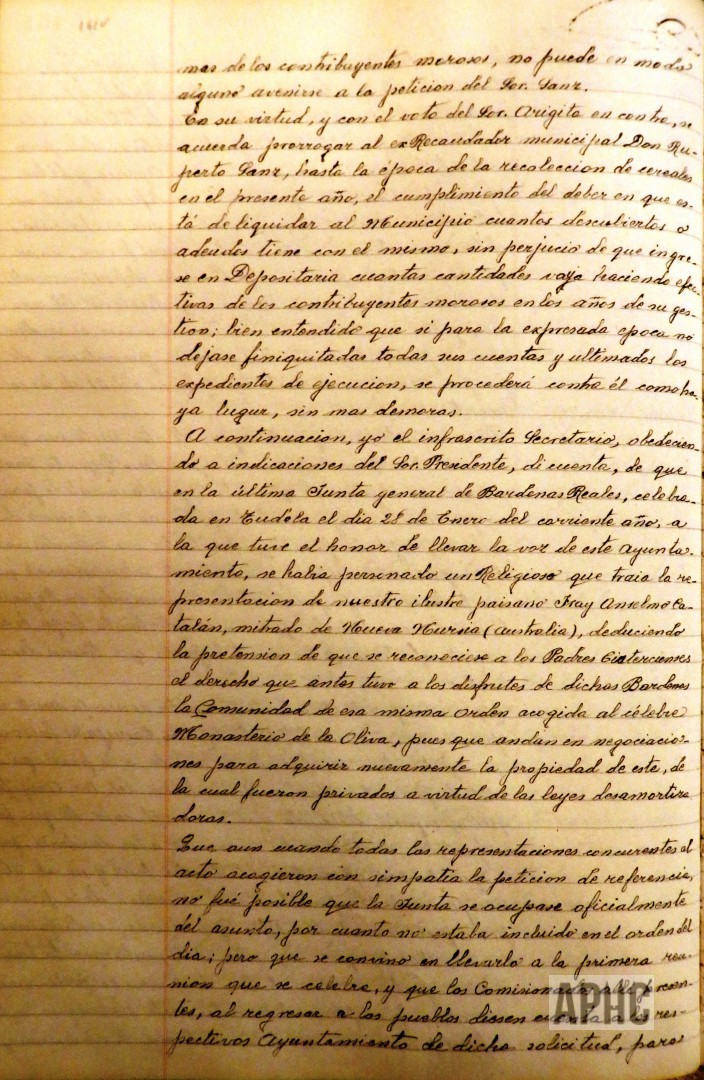 mas de los contribuyentes morosos, no puede en modo
alguno avenirse a la peticion del Sor. Sanz.
En su virtud, y con el voto del Sor. Arigita en contra, se
acuerda prorrogar al exRecaudador municipal Don Ru-
perto Sanz, hasta la época de la recoleccion de cereales
en el presente año, el cumplimiento del deber en que es-
tá de liquidar al Municipio cuantos descubiertos o
adeudos tiene con el mismo, sin perjucio de que ingre-
se en Depositaria cuantas cantidades vaya haciendo efec-
tivas de los contribuyentes morosos en los años de su ges-
tion; bien entendido que si para la expresada epoca no
dejase finiquitadas todas sus cuentas y ultimados los
expedientes de ejecucion, se procederá contra él como ha-
ya lugar, sin mas demoras.
A continuacion, yo el infrascrito Secretario, obedecien-
do a indicaciones del Sor. Presidente, di cuenta, de que
en la última Junta general de Bardenas Reales, celebra-
da en Tudela el dia de Enero del corriente año, a
la que tuve el honor de llevar la voz de este Ayunta-
miento, se habia personado un Religioso que traia la re-
presentacion de nuestro ilustre paisano Fray Anselmo Ca-
talán, mitrado de Nueva Nursia (Australia), deduciendo
la pretension de que se reconociese a los Padres Cistercienses
el derecho que antes tuvo a los disfrutes de dichas Bardenas
la Comunidad de esa misma orden acogida al célebre
Monasterio de la Oliva, pues que andan en negociacio-
nes para adquirir nuevamente la propiedad de este, de
la cual fueron privados a virtud de las leyes desamortiza
doras.
Que aun cuando todas las representaciones concurentes al
acto acogieron con simpatía la peticion de referencia,
no fué posible que la Junta se ocupase oficialmente
del asunto, por cuanto no estaba incluido en el orden del
dia; pero que se convino en llevarlo a la primera reu-
nion que se celebre, y que los Comisionados alli presen-
tes, al regresar a los pueblos diesen cuenta a los res-
pectivos Ayuntamiento de dicha solicitud, para
APHC